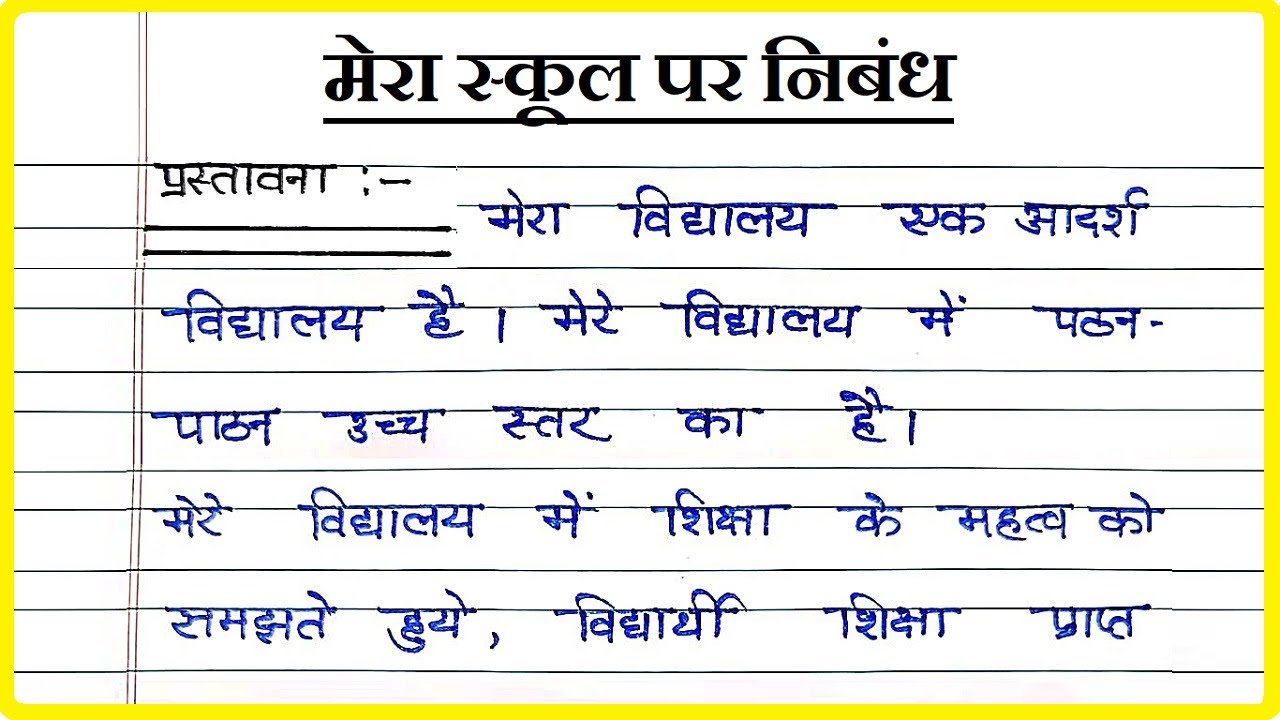 मेरा स्कूल पर निबंध
प्रस्तावना :-
मेरा विद्यालय एक आदर्श
विद्यालय है। मेरे विद्यालय में पठन-
पाठन उच्च स्तर का है।
मेरे विद्यालय में शिक्षा के महत्व को
समझते हुये, विद्यार्थी शिक्षा प्राप्त